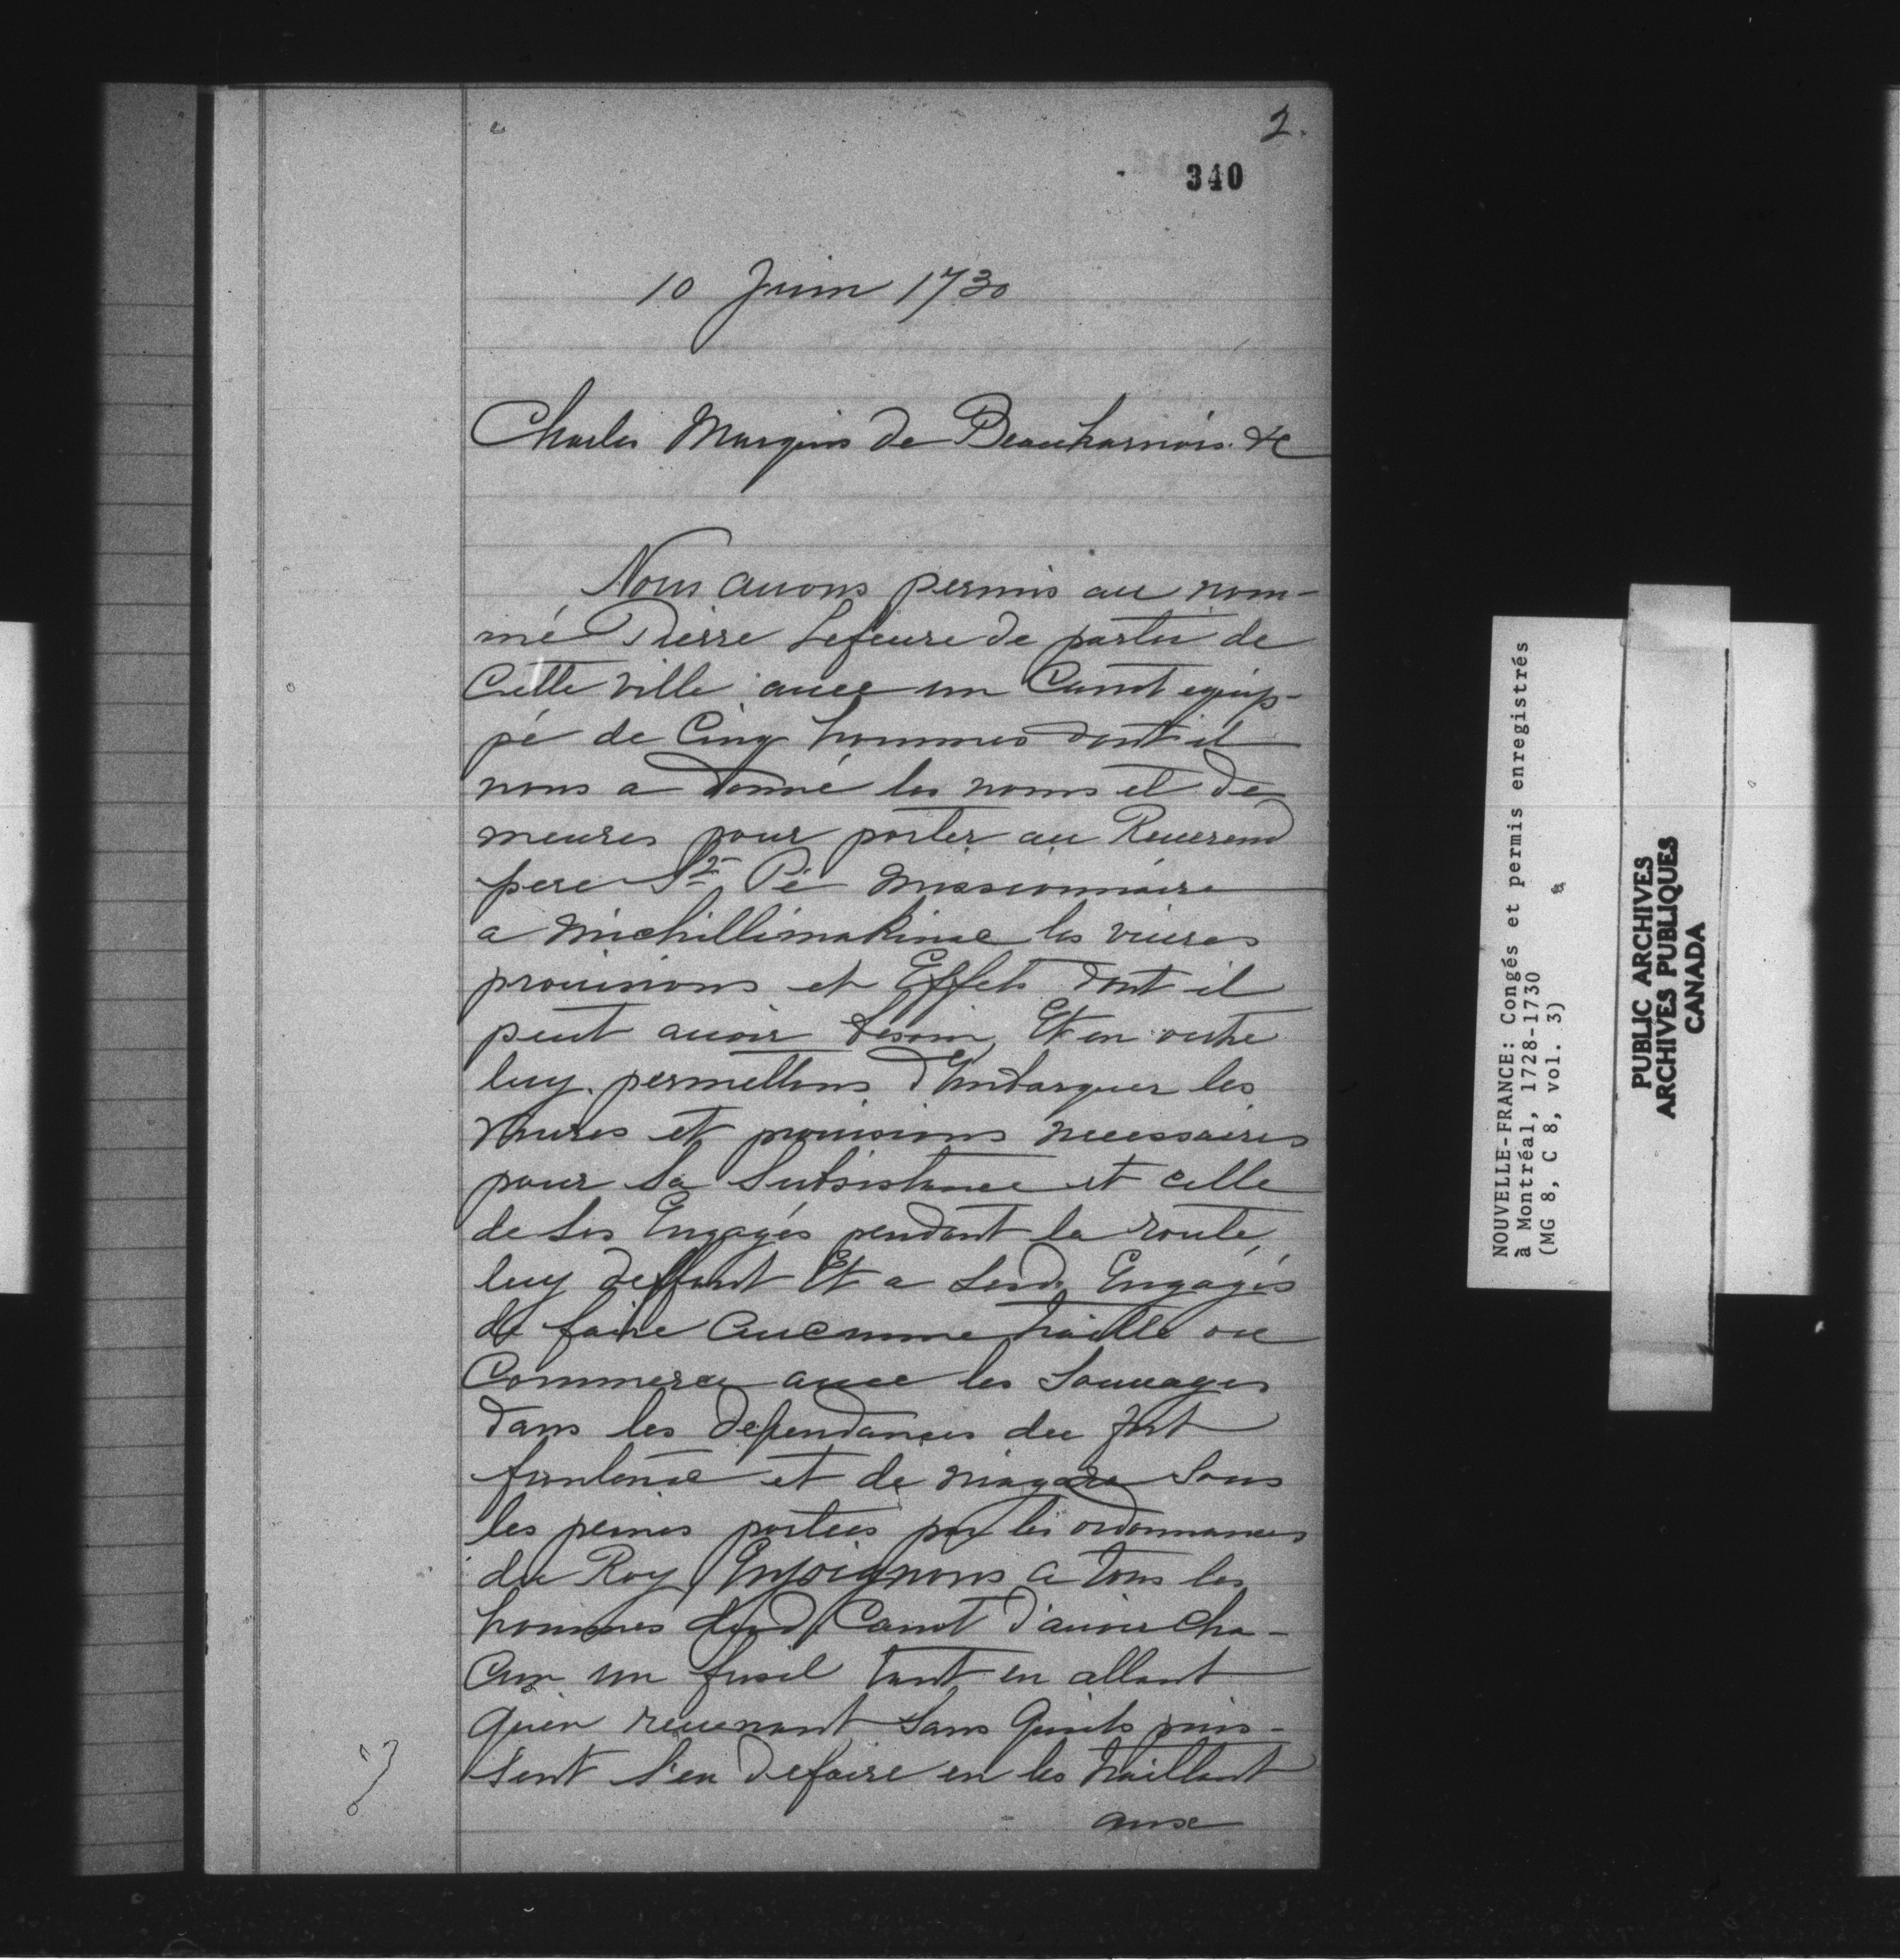 2.
340
10 Juin 1730
Charles Marquis de Beauharnois &c
Nous auons permis au nom-
mé Pierre Lefeure de partir de
Cette ville auec un Canot equip-
pé de Cinq hommes dont il
nous a donné les noms et de
meures pour porter au Reuerend
pere St Pé missionnaire
a michillimakinac les viures
prouisions et Effets dont il
peut auoir besoin, Et en outre
luy permettons d'Embarquer les
viures et prouisions necessaires
pour sa subsistance et celle
de ses Engagés pendant la route,
luy deffend Et a sesd. Engagés
de faire aucunne traitte ou
Commerce auec les Sauuages
dans les dependances du fort
frontenac et de niagara sous
les peines portées par les ordonnances
du Roy Enjoignons a tous les
hommes dud. Canot d'auoir cha-
cun un fusil tant en allant
qu'en reuenant sans quils puis-
sent s'en defaire en les traittant
aux
NOUVELLE-FRANCE: Congés et permis enregistrés
à Montréal, 1728-1730
(MG 8, C 8, vol. 3)
PUBLIC ARCHIVES
ARCHIVES PUBLIQUES
CANADA